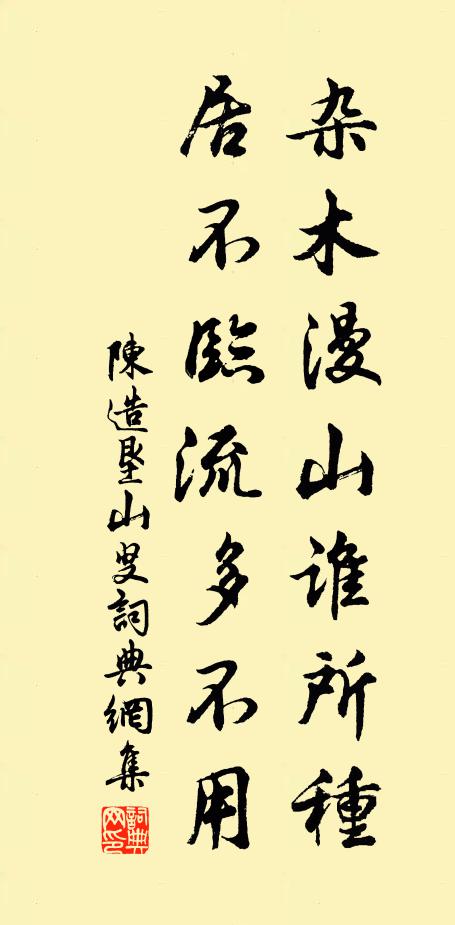 杂木漫山谁所種
居不臨流多不用
陳造墾山叟詞典網集
詞典網印